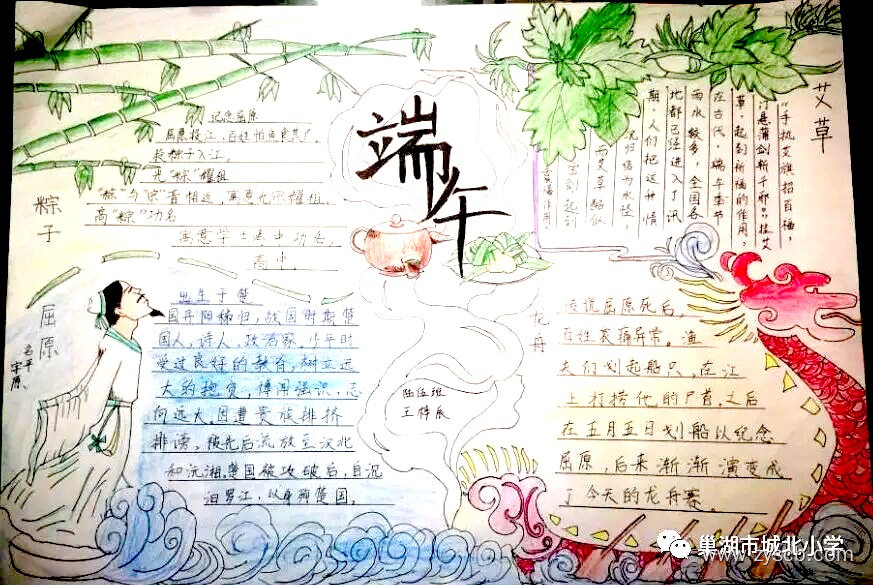 端午
粽子
记念屈原
屈原投江,百姓怕鱼食其尸,
投粽子入江,
光"粽"耀祖
"粽"与"宗"音相近,寓意光宗耀祖,
高"粽"功名
寓意学士考中功名,
高中。
艾草
"手执艾旗招百福,
门悬蒲剑斩千邪",挂艾
草,起到祈福的作用,
在古代,端午季节
雨水较多,全国各
地都已经进入了汛
期,人们把这种情
况归结为水怪,
而艾草酷似
宝剑起到
屈原
名平,
字原
出生于楚
国丹阳秭归,战国时期楚
国人,诗人,政治家。少年时
受过良好的教育,树立远
大的抱负,博闻强识,志
向远大,因遭贵族排挤
排谤,被先后流放至汉北
和沅湘,楚国被攻破后,自沉
汨罗江,以身殉楚国。
龙舟
传说屈原死后,
百姓哀痛异常。渔
夫们划起船只,在江
上打捞他的尸首,之后
在五月五日划船以纪念
屈原,后来渐渐演变成
了今天的龙舟赛。
巢湖市城北小学
www.zyscb.com